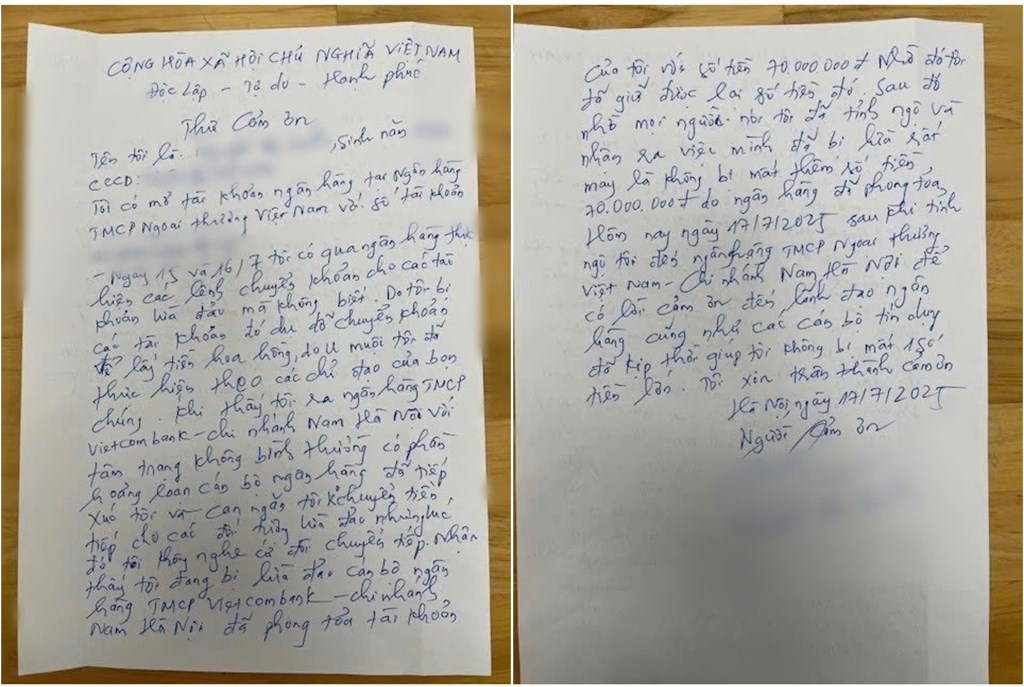 CỘNG HÒA XÃ HỘI CHỦ NGHĨA VIỆT NAM
Độc Lập - Tự do - Hạnh phúc
Thư Cảm ơn
Tên tôi là: , sinh năm
CCCD:
Tôi có mở tài khoản ngân hàng, tại Ngân hàng
TMCP Ngoại thương Việt Nam với số tài khoản
- Ngày 15 và 16/7 tôi có qua ngân hàng thực
hiện các lệnh chuyển khoản cho các tài
khoản lừa đảo mà không biết. Do tôi bị
các tài khoản đó dụ dỗ chuyển khoản
để lấy tiền hoa hồng, do u muội tôi đã
thực hiện theo các chỉ đạo của bọn
chúng. Khi thấy tôi ra ngân hàng TMCP
Vietcombank - chi nhánh Nam Hà Nội với
tâm trạng không bình thường có phần
hoảng loạn cán bộ ngân hàng đã tiếp
xúc tôi và can ngăn tôi K° chuyển tiền
tiếp cho các đối tượng lừa đảo nhưng lúc
đó tôi không nghe cứ đòi chuyển tiếp. Nhận
thấy tôi đang bị lừa đảo cán bộ ngân
hàng TMCP Vietcombank - chi nhánh
Nam Hà Nội đã phong tỏa tài khoản
Của tôi với số tiền 70.000.000 đ Nhờ đó tôi
đã giữ được lại số tiền đó. Sau đó
nhờ mọi người nói tôi đã tỉnh ngộ và
nhận ra việc mình đã bị lừa rất
may là không bị mất thêm số tiền
70.000.000 đ do ngân hàng đã phong tỏa,
Hôm nay ngày 17/7/2025 sau khi tỉnh
ngộ tôi đến ngân hàng TMCP Ngoại thương
Việt Nam - Chi nhánh Nam Hà Nội để
có lời cảm ơn đến lãnh đạo ngân
hàng cũng như các cán bộ tín dụng
đã kịp thời giúp tôi không bị mất 1 số
tiền lớn. Tôi xin trân thành cảm ơn
Hà Nội ngày 17/7/2025
Người Cảm ơn